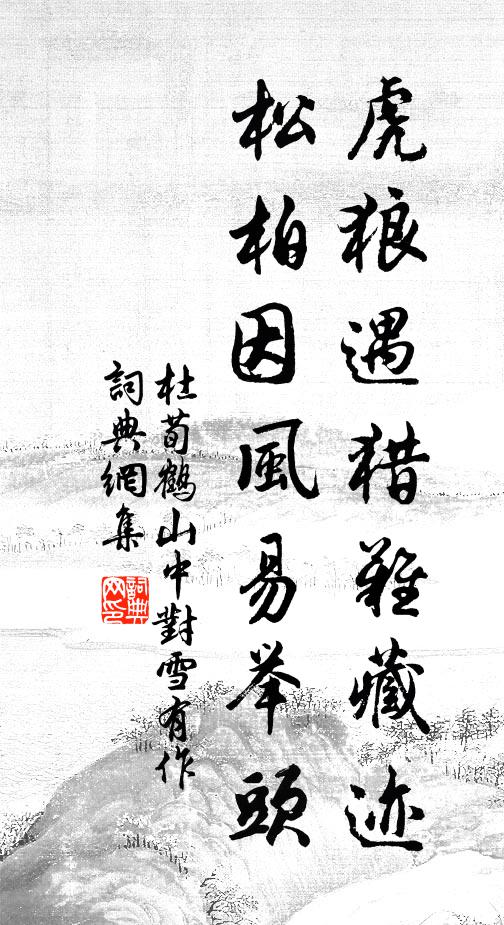 虎狼遇猎難藏迹
松柏因風易举頭
杜荀鶴山中對雪有作
詞典網集
詞典網印